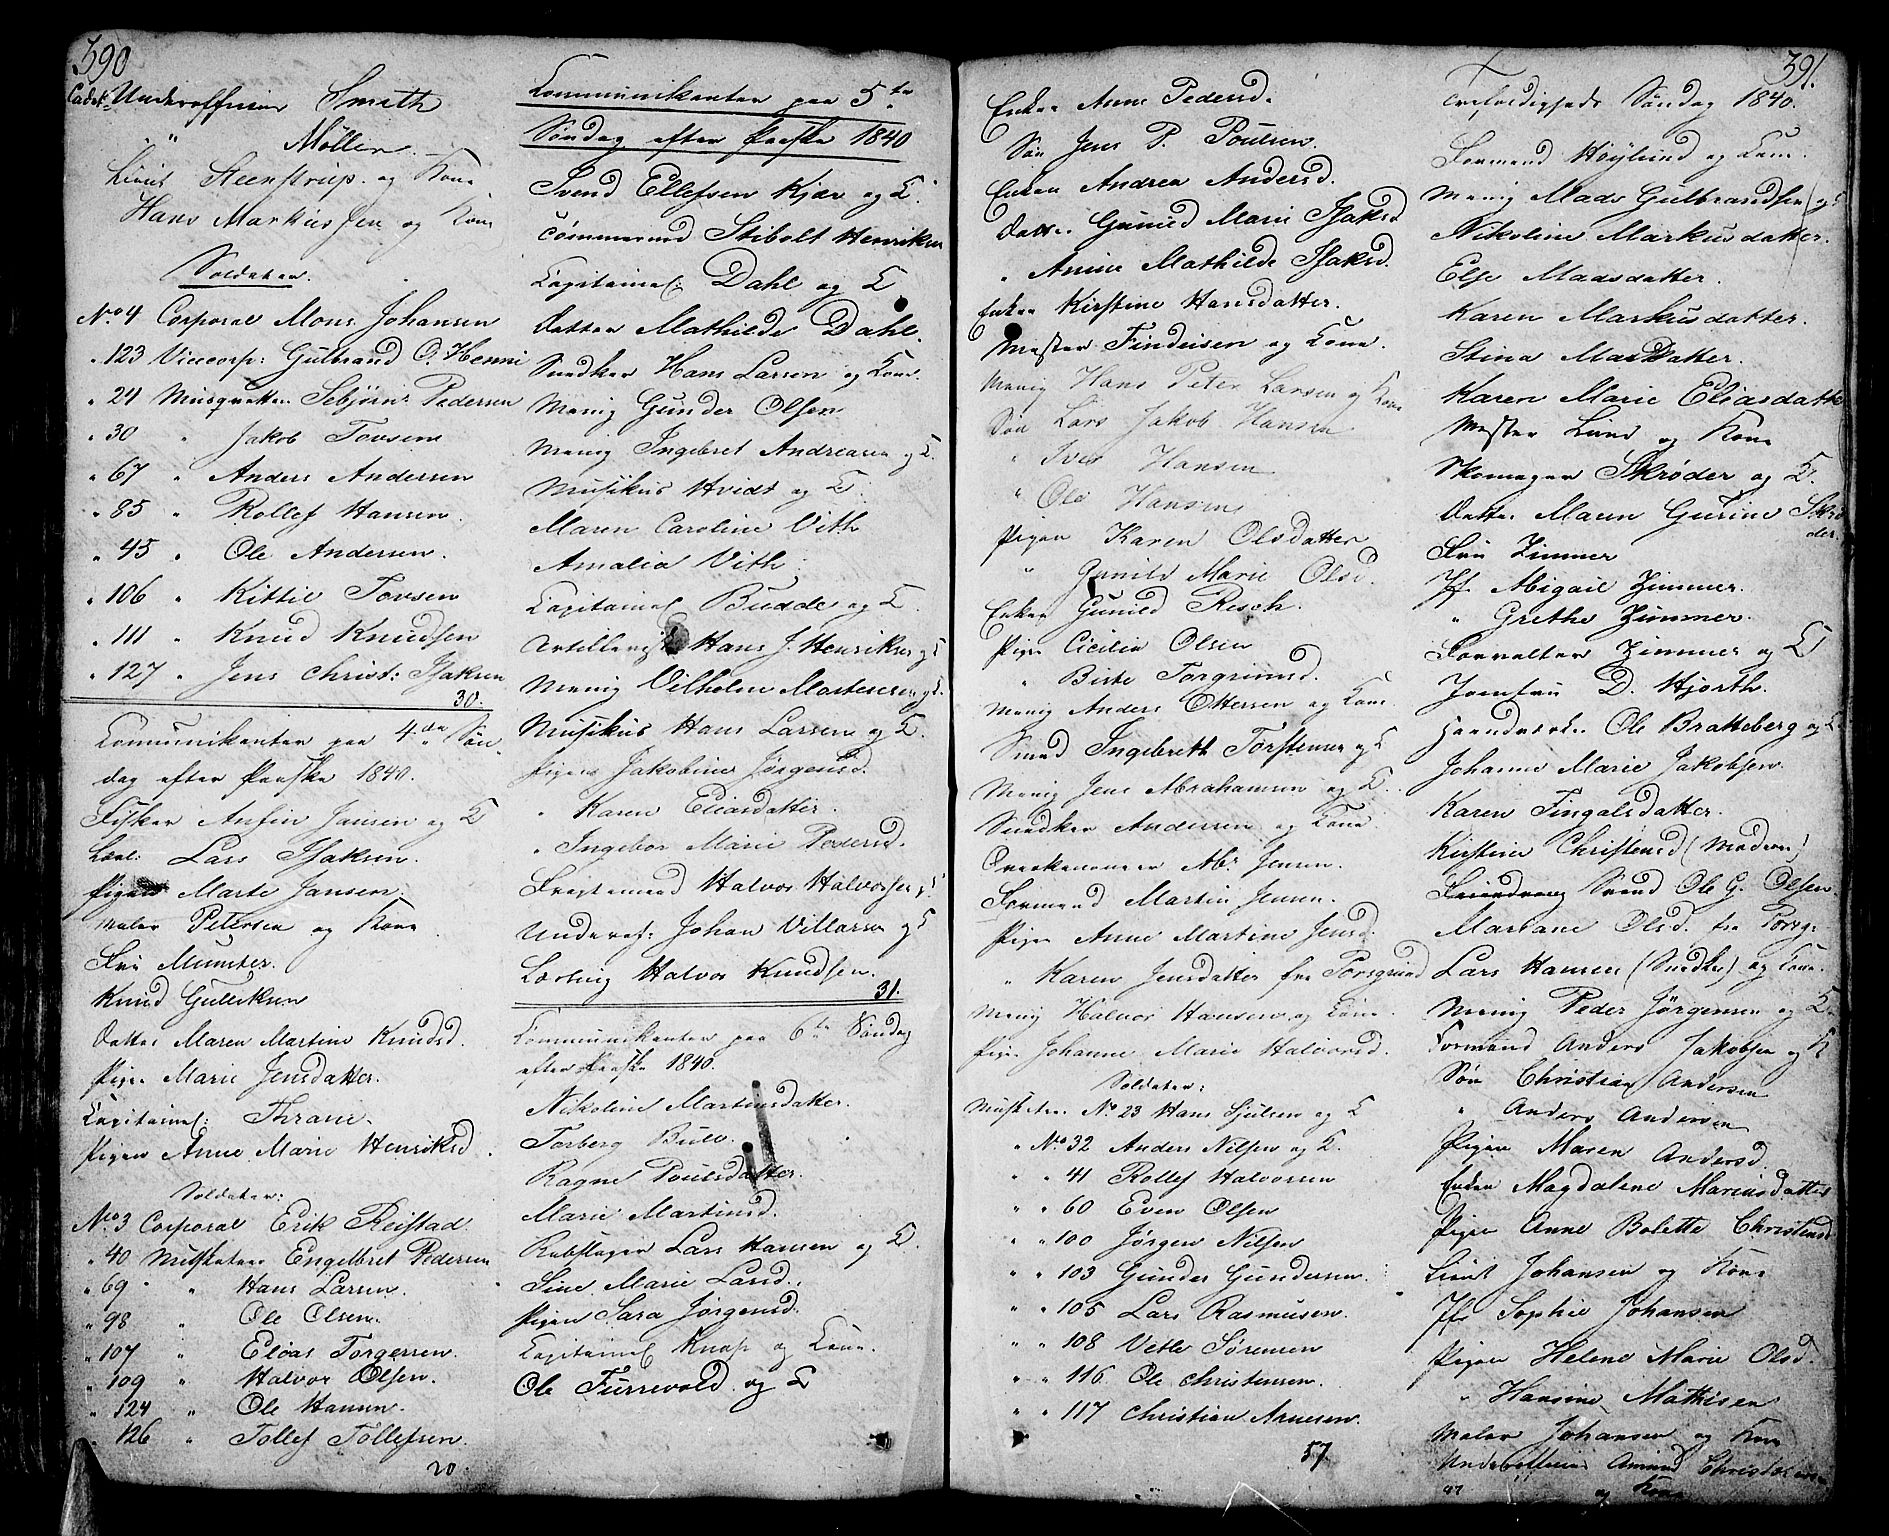 390
Cadet-Underofficier Smith
" Møller.
Lieut Steenstrup og Kone
Hans Markussen og Kone
Soldater.
No. 4 Corporal Mons Johansen
" 123 Vicecorp: Gulbrand O. Henni
" 24 Musquetter Sebjørn Pedersen
" 30 " Jakob Tovsen
" 67 " Anders Andersen
" 85 " Rollef Hansen.
" 45 " Ole Andersen.
" 106 " Kittil Tovsen
" 111 " Knud Knudsen
" 127 " Jens Christ: Isaksen
30.
Communikanter paa 4de Søn-
dag efter Paaske 1840.
Fisker Anfin Jansen og K
Lars Isaksen.
Pigen Marte Jansen.
Maler Petersen og Kone
Fru Munster.
Knud Gulliksen
Datter Maren Martine Knudsd.
Pigen Marie Jensdatter.
Capitaine: Thrane.
Pigen Anne Marie Henriksd.
Soldater:
No. 3 Corporal Erik Reistad.
" 40 Musketeer Engelbret Pedersen
" 69 " Hans Larsen.
" 98 " Ole Olsen.
" 107 " Elias Torgersen.
" 109 " Halvor Olsen.
" 124 " Ole Hansen.
" 126 " Tollef Tollefsen.
20.
Communikanter paa 5te
Søndag efter Paaske 1840
Svend Ellefsen Kjær og K.
Tømmermd Stibolt Henriksen
Capitaine: Dahl og K
Datter Mathilde Dahl.
Snedker Hans Larsen og Kone.
Menig Gunder Olsen
Menig Ingebret Andreasen og K.
Musikus Hvidt og K.
Maren Caroline Vith
Amalia Vith.
Capitaine Budde og K.
Artillerist Hans J. Henriksen og K
Menig Vilhelm Martensen og K.
Musikus Hans Larsen og K.
Pigen Jakobine Jørgensd.
" Karen Eliasdatter.
" Ingebor Marie Pedersd.
Halvor Halvorsen og K
Underof: Johan Villarsen og K
Lærling Halvor Knudsen.
31.
Communikanter paa 6te Søndag
efter Paaske 1840.
Nikoline Martinsdatter.
Torberg Bull.
Ragne Poulsdatter.
Marie Martinsd.
Rebslager Lars Hansen og K.
Sine Marie Larsd.
Pigen Sara Jørgensd.
Capitaine Knap og Kone.
Ole Furrevald og K
Enken Anne Pedersd.
Søn Jens P. Poulsen.
Enken Andrea Andersd.
Datter Gunild Marie Isaksd
" Anine Mathilde Isaksd.
Enken Kirstine Hansdatter.
Mester Findeisen og Kone.
Menig Hans Peter Larsen og Kone
Søn Lars Jakob Hansen
" Iver Hansen
" Ole Hansen
Pigen Karen Olsdatter
" Gunild Marie Olsd.
Enken Gunild Resch.
Pigen Cicilia Olsen
" Birte Torgrimsd.
Menig Anders Ottersen og Kone.
Smed Ingebreth Torstensen og K
Menig Jens Abrahamsen og K.
Snedker Andersen og Kone.
Ab. Jensen.
Formand Martin Jensen.
Pigen Anne Martine Jensd.
" Karen Jensdatter fra Porsgrund
Menig Halvor Hansen og Kone.
Pigen Johanne Marie Halvorsd.
Soldater:
Musketeer No. 23 Hans Sjulsen og K
" No. 32 Anders Nilsen og K.
" " 41 Rollef Halvorsen
" " 60 Even Olsen
" " 100 Jørgen Nilsen
" " 103 Gunder Gundersen.
" " 105 Lars Rasmusen.
" " 108 Vetle Sørensen
" " 116 Ole Christensen.
" " 117 Christian Arnesen.
57
391.
Trefoldigheds Søndag 1840.
Formand Høylund og Kone.
Menig Mads Gulbrandsen og K
Nikoline Markusdatter.
Else Madsdatter.
Karen Markusdatter.
Stina Madsdatter.
Karen Marie Eliasdatter
Mester Lund og Kone
Skomager Skrøder og K.
Datter Maren Gurine Skrø
der.
Fru Zimmer
Jfr Abigail Zimmer.
" Grethe Zimmer.
Forvalter Zimmer og K
Jomfru D. Hjorth.
Haandværker Ole Bratteberg og K
Johanne Marie Jakobsen.
Karen Fingalsdatter.
Kirstine Christensd (Moderen)
Svend Ole G. Olsen.
Mariane Olsd. fra Porsg.
Lars Hansen (Snedker) og Kone.
Menig Peder Jørgensen og K.
Formand Anders Jakobsen og K
Søn Christian Andersen
" Anders Andersen
Pigen Maren Andersd.
Enken Magdalene Mariusdatter
Pigen Anne Bolette Christensd
Lieut Johansen og Kone
Jfr Sophie Johansen
Pigen Helene Marie Olsd.
" Hansine Mathisen
Maler Johansen og Kone
Underofficier Amund Christensen
47 og Kone